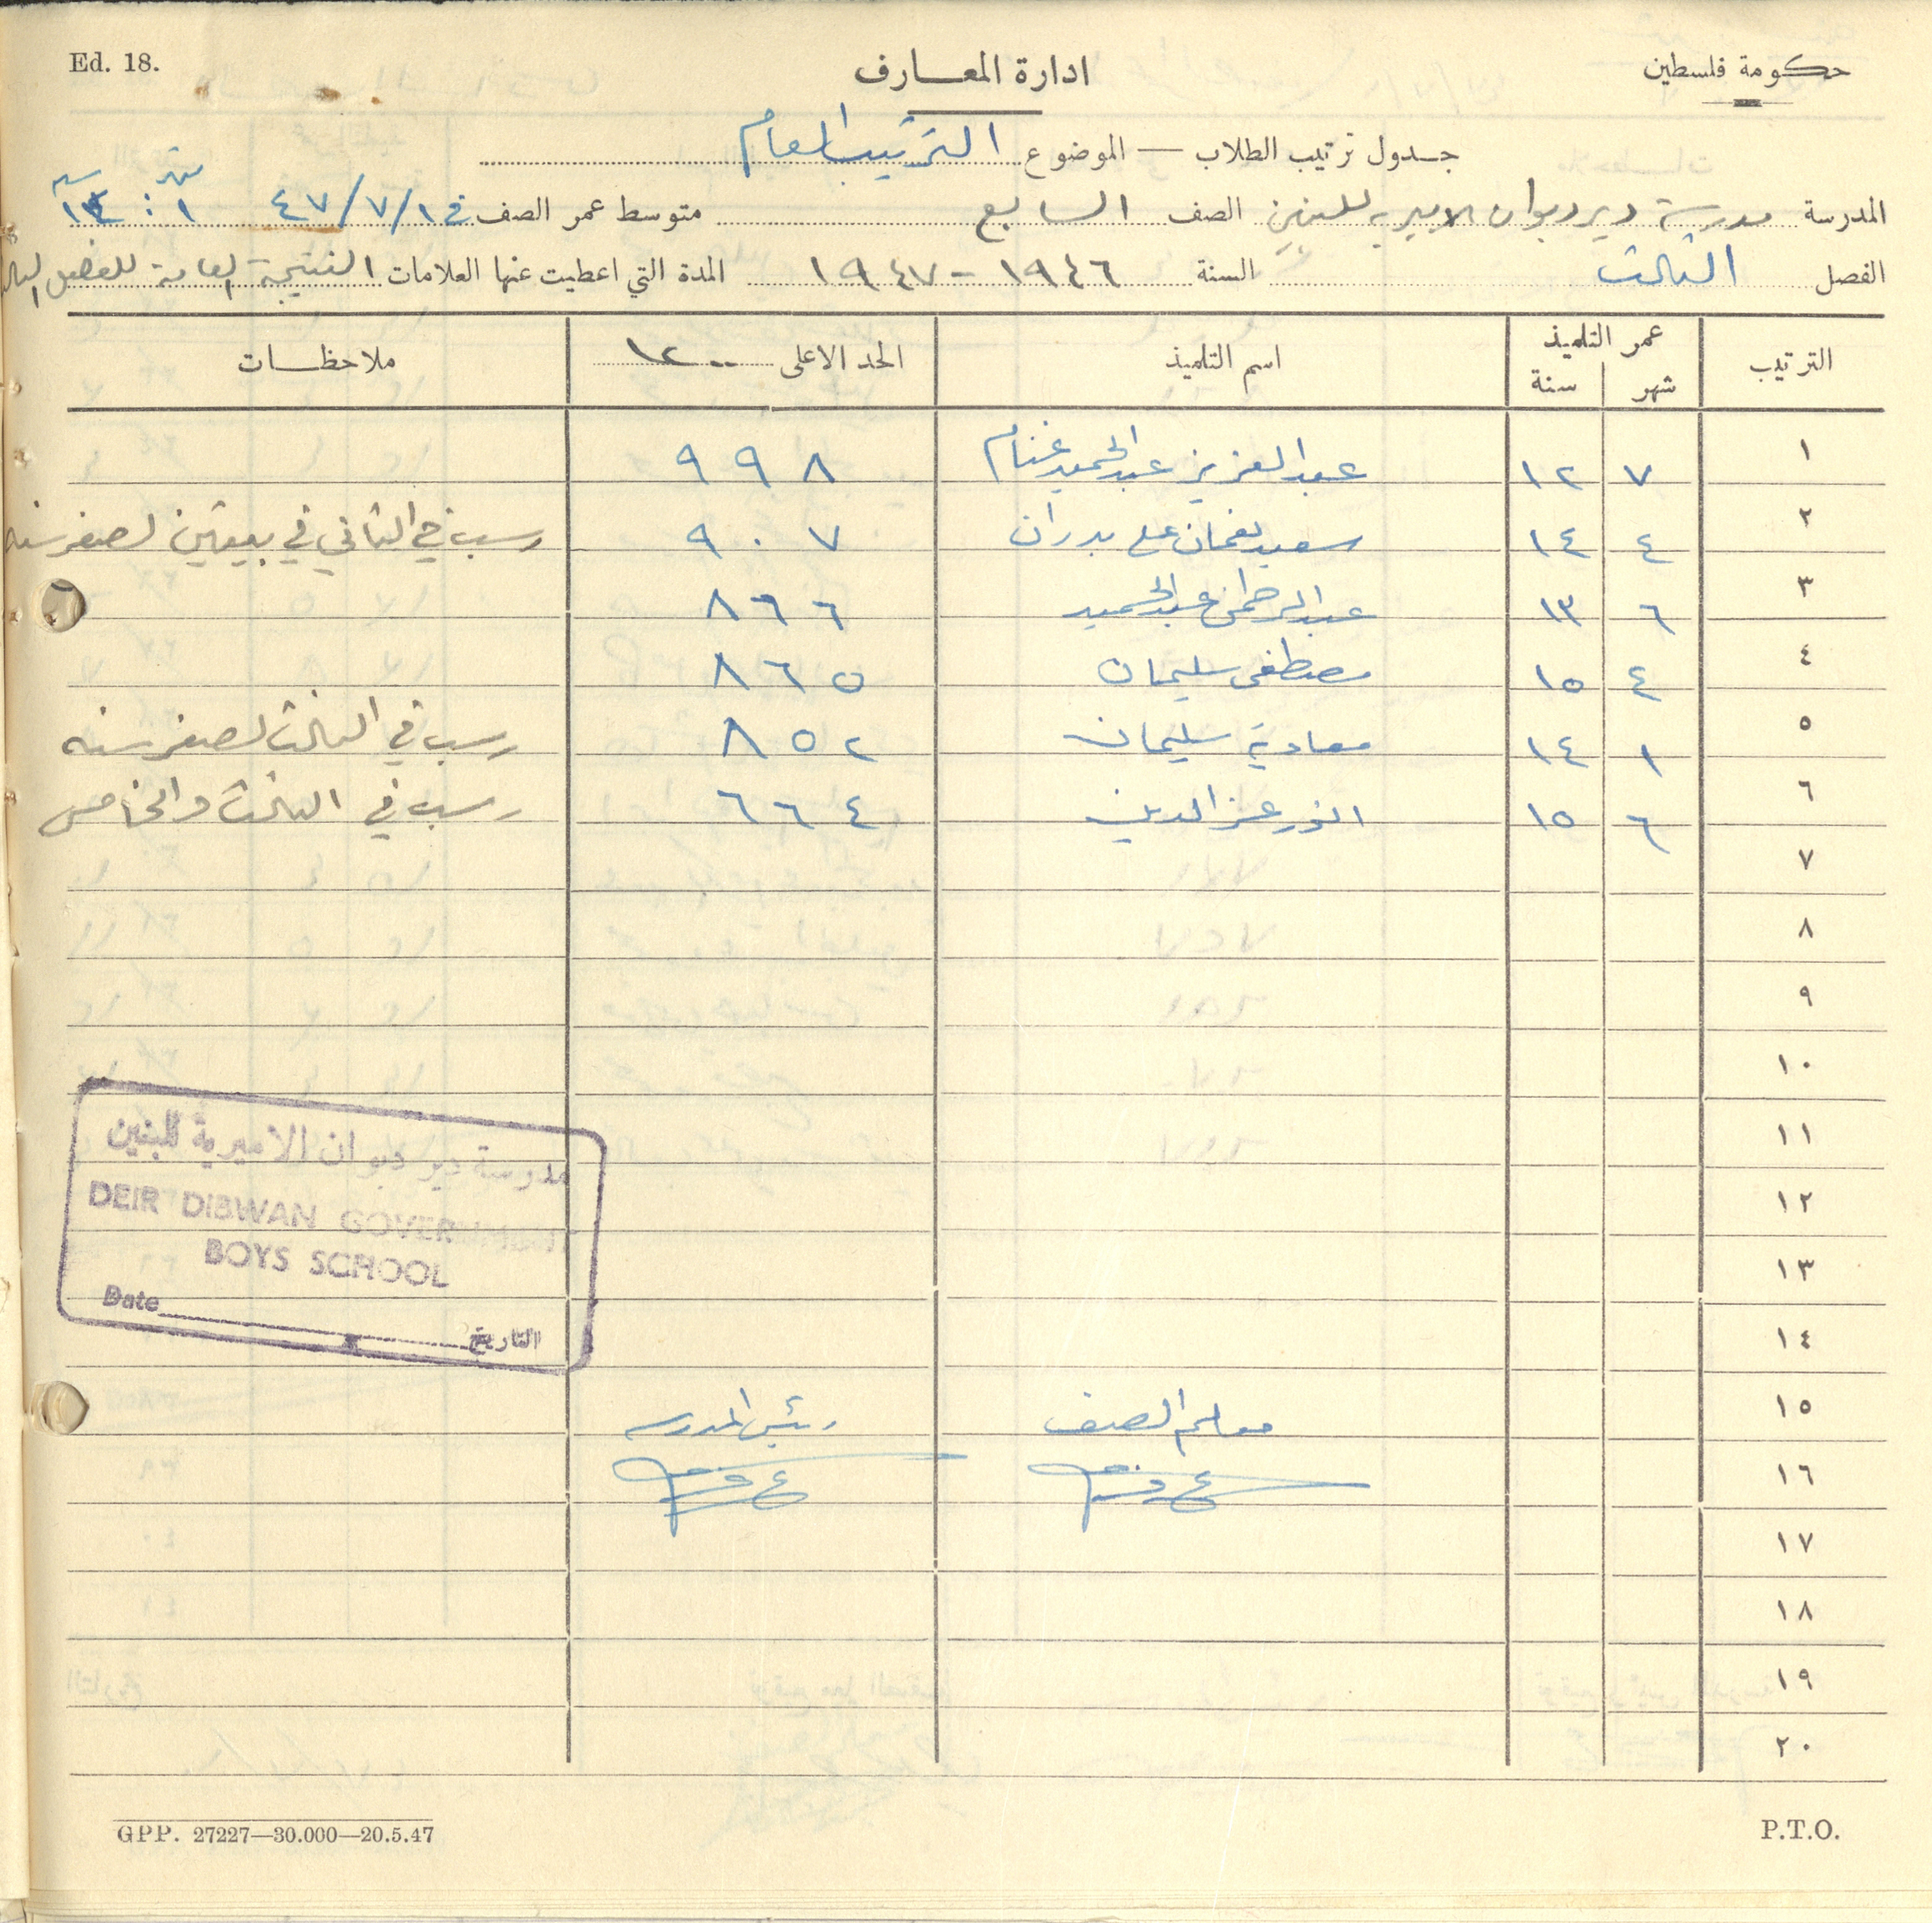 Ed. 18.
ادارة المعارف
حكومة فلسطين
جدول ترتيب الطلاب — الموضوع الترتيب العام
المدرسة مدرسة ديردبوان الاميرية للبنين الصف السابع متوسط عمر الصف في ٤٧/٧/١
الفصل الثالث السنة ١٩٤٦-١٩٤٧ المدة التي اعطيت عنها العلامات النتيجة العامة للفصل الثالث
الترتيب عمر التلميذ شهر سنة اسم التلميذ الحد الاعلى ١٢٠٠ ملاحظات
١ ٧ ١٢ عبد العزيز عبد الحميد غنام ٩٩٨
٢ ٤ ١٤ سعيد نعمان علي بدران ٩٠٧ رسب في الثاني في لصغر سنه
٣ ٦ ١٣ عبد الرحمن عبد الحميد ٨٦٦
٤ ٤ ١٥ مصطفى سليمان ٨٦٥
٥ ١ ١٤ معاوية سليمان ٨٥٢ رسب في الثالث لصغر سنه
٦ ٦ ١٥ انور عز الدين ٦٦٤ رسب في الثالث والخامس
٧
٨
٩
١٠
١١
١٢
١٣
١٤
١٥
١٦
١٧
١٨
١٩
٢٠
مدرسة دير دبوان الاميرية للبنين
DEIR DIBWAN GOVERNMENT
BOYS SCHOOL
Date التاريخ
معلم الصف رئيس المدرسة
GPP. 27227—30.000—20.5.47
P.T.O.